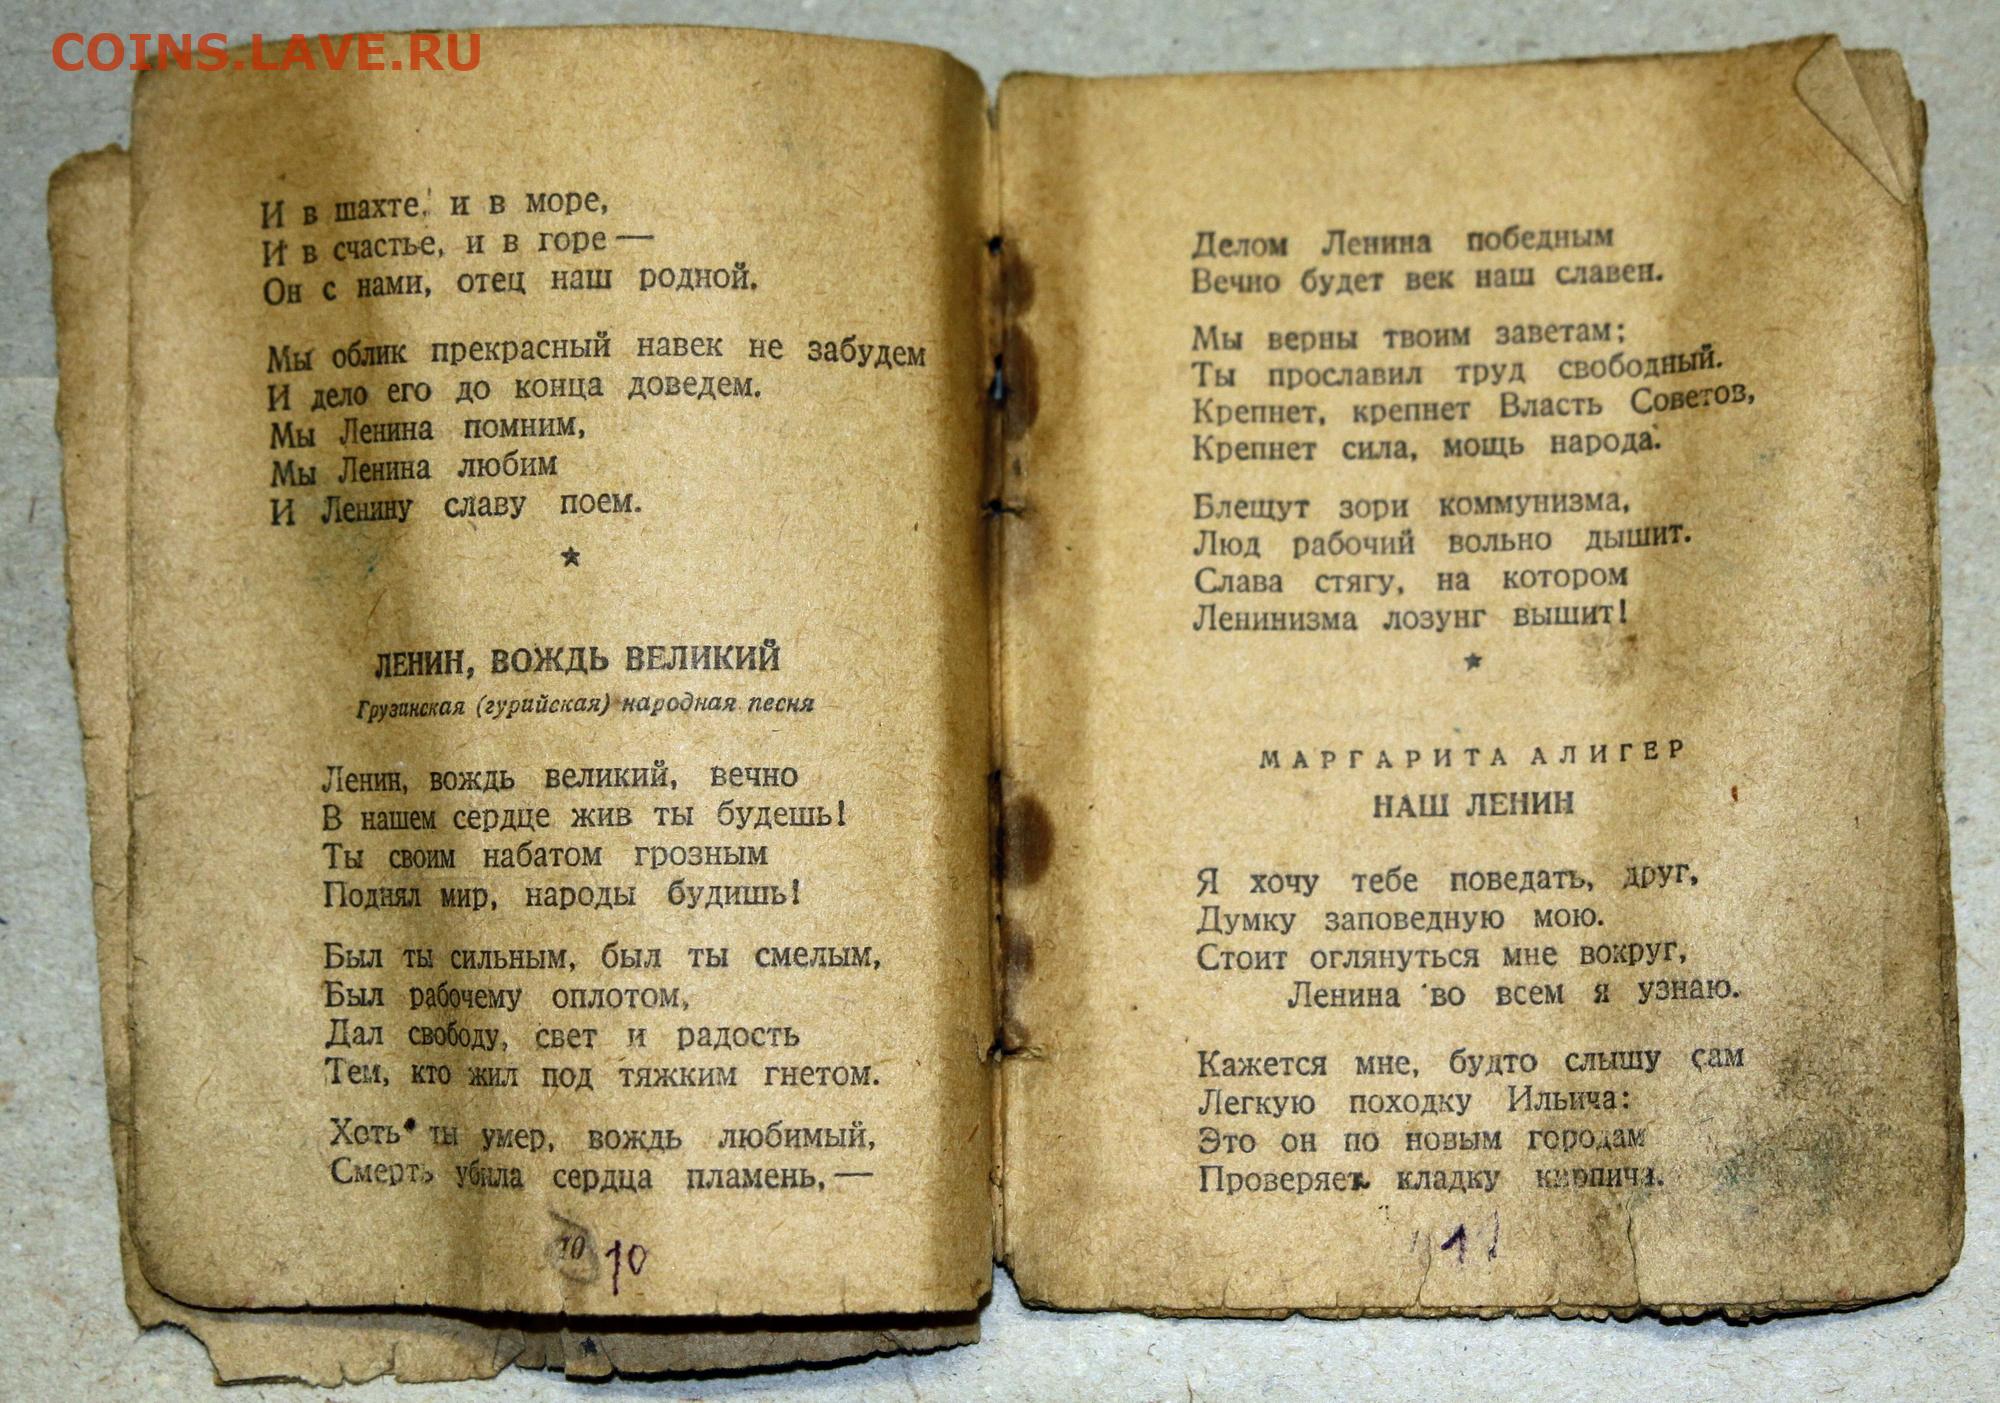 COINS.LAVE.RU
И в шахте, и в море,
И в счастье, и в горе —
Он с нами, отец наш родной.
Мы облик прекрасный навек не забудем
И дело его до конца доведем.
Мы Ленина помним,
Мы Ленина любим
И Ленину славу поем.
ЛЕНИН, ВОЖДЬ ВЕЛИКИЙ
Грузинская (гурийская) народная песня
Ленин, вождь великий, вечно
В нашем сердце жив ты будешь!
Ты своим набатом грозным
Поднял мир, народы будишь!
Был ты сильным, был ты смелым,
Был рабочему оплотом,
Дал свободу, свет и радость
Тем, кто жил под тяжким гнетом.
Хоть ты умер, вождь любимый,
Смерть убила сердца пламень, —
10 10
Делом Ленина победным
Вечно будет век наш славен.
Мы верны твоим заветам;
Ты прославил труд свободный.
Крепнет, крепнет Власть Советов,
Крепнет сила, мощь народа.
Блещут зори коммунизма,
Люд рабочий вольно дышит.
Слава стягу, на котором
Ленинизма лозунг вышит!
МАРГАРИТА АЛИГЕР
НАШ ЛЕНИН
Я хочу тебе поведать, друг,
Думку заповедную мою.
Стоит оглянуться мне вокруг,
Ленина во всем я узнаю.
Кажется мне, будто слышу сам
Легкую походку Ильича:
Это он по новым городам
Проверяет кладку кирпича.